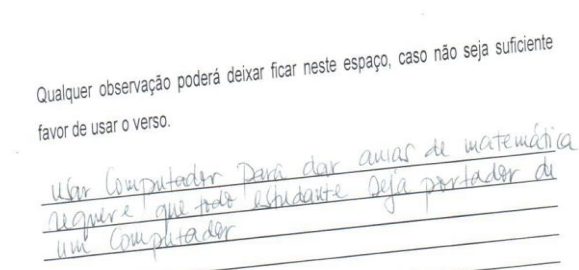 Qualquer observação poderá deixar ficar neste espaço, caso não seja suficiente
favor de usar o verso.
Usar Computador para dar aulas de matemática
requere que todo estudante seja portador de
um Computador